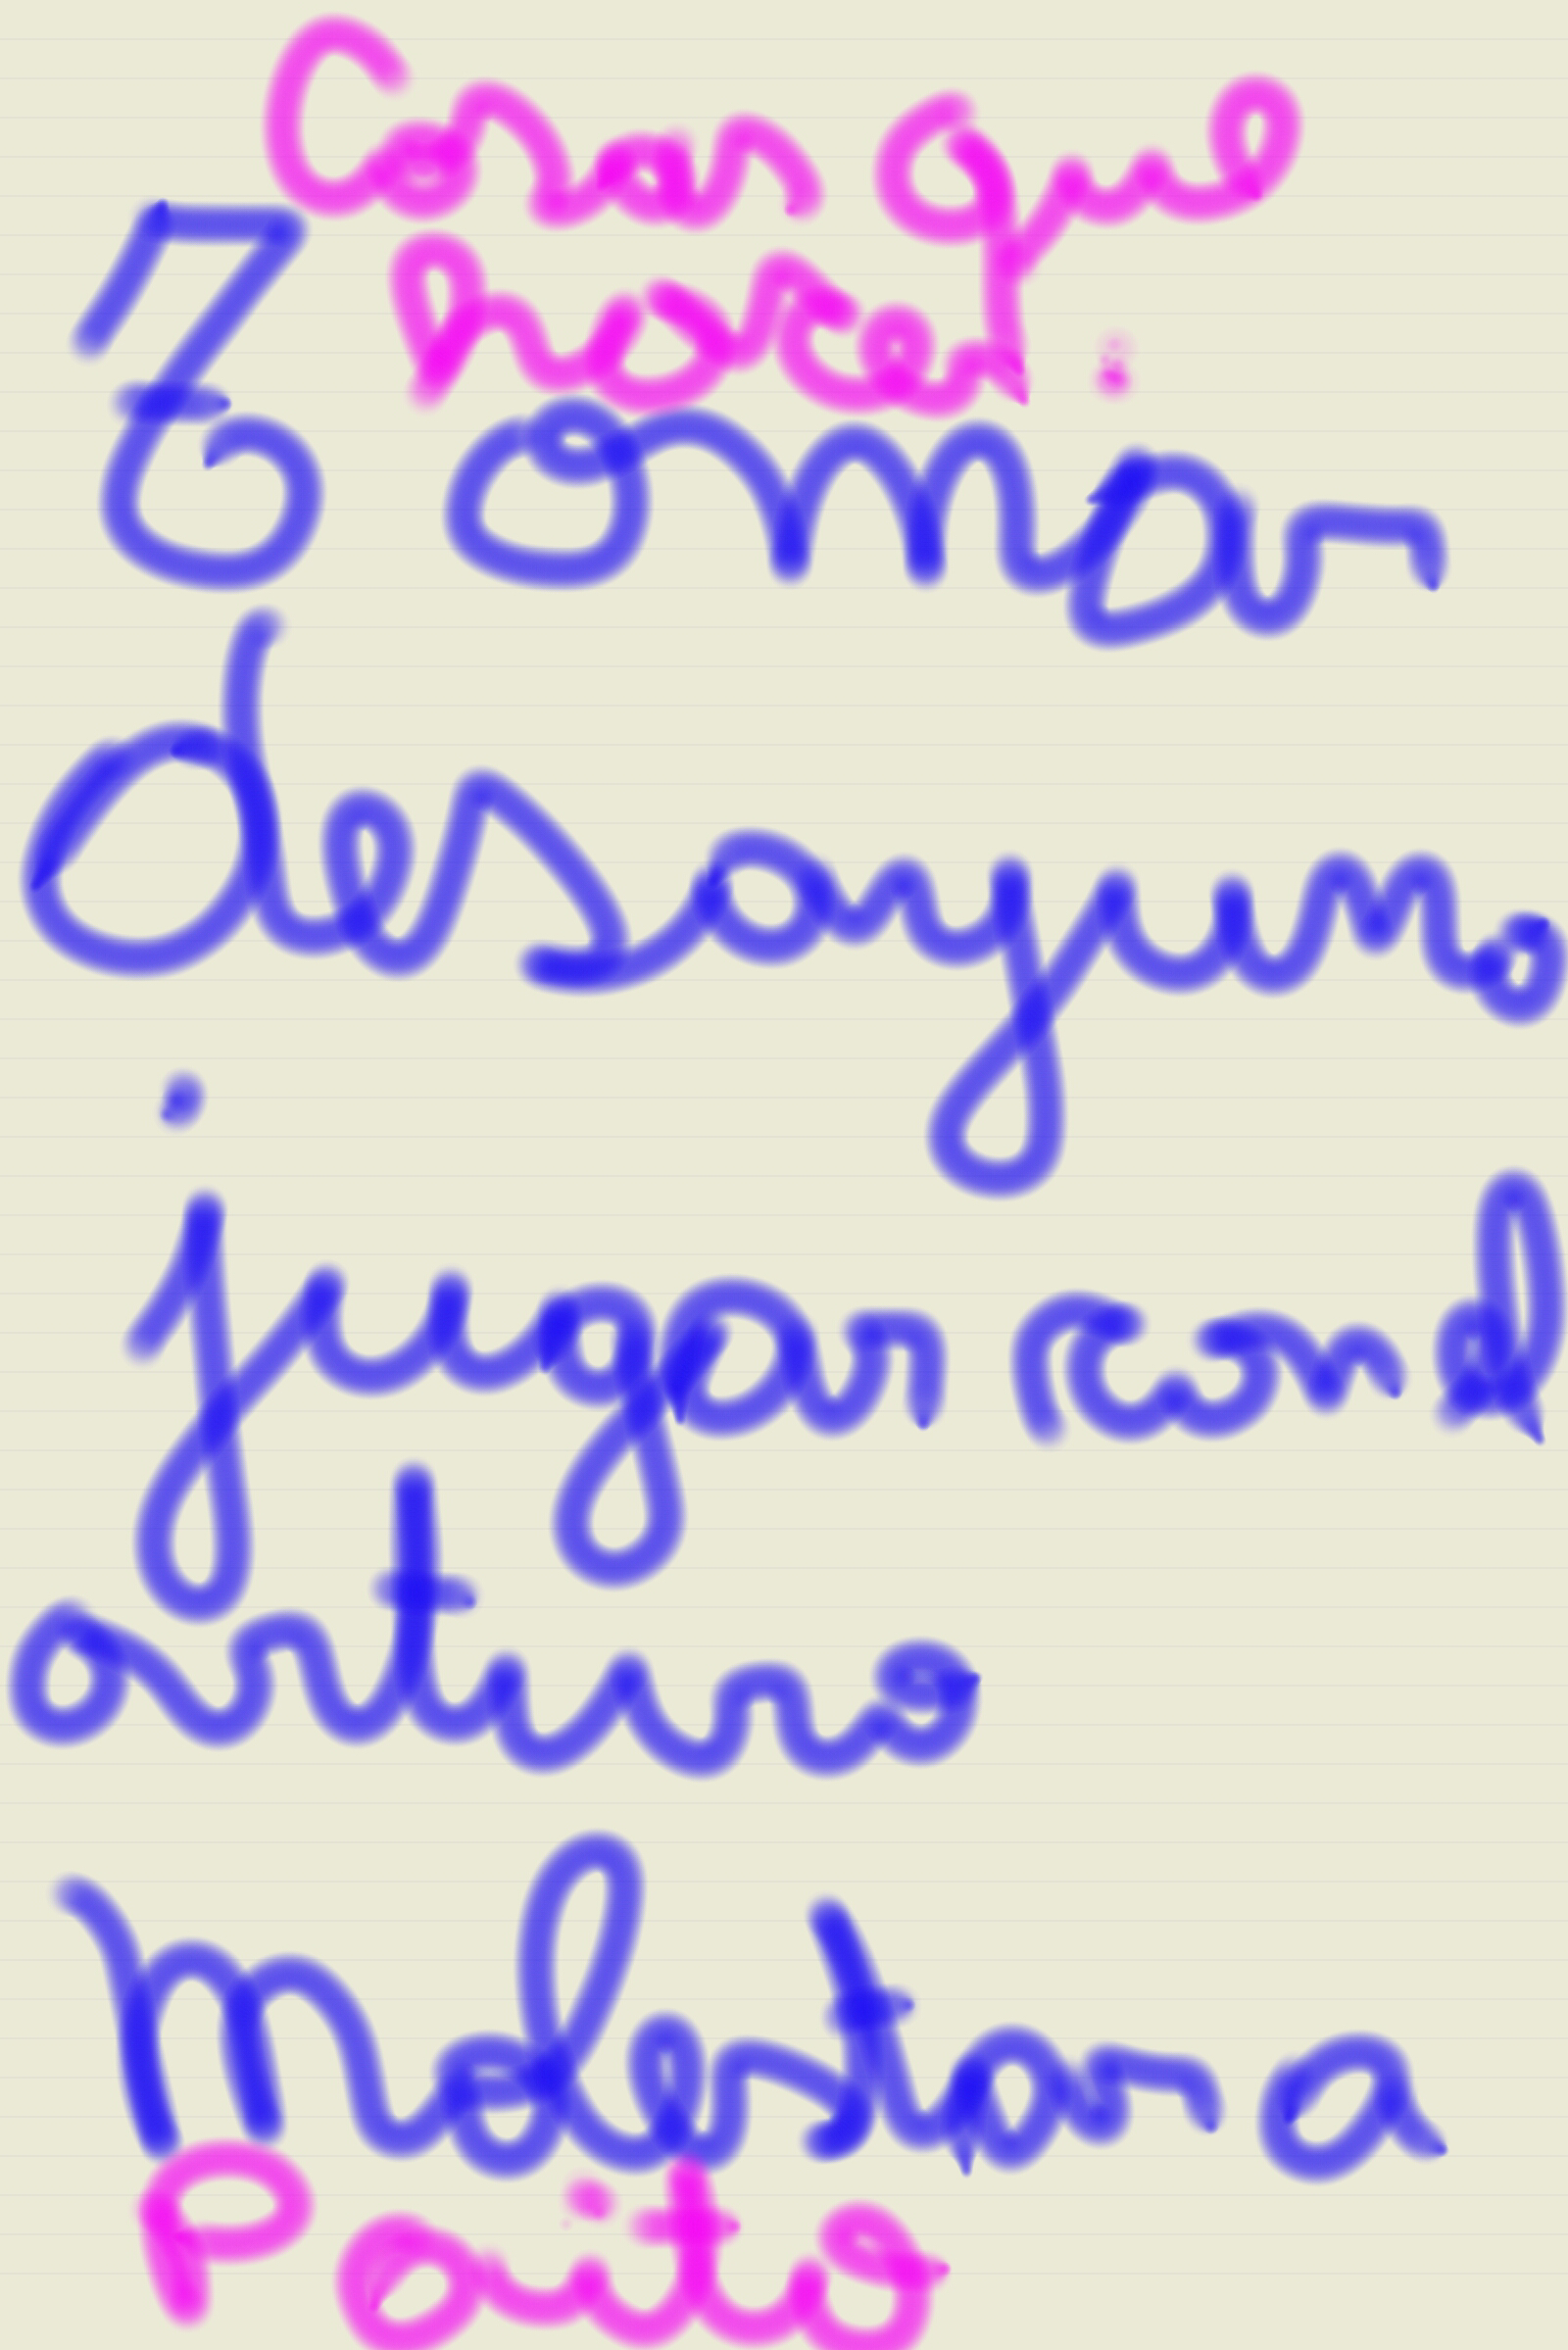 Cosas que
hacer:
Tomar
desayuno
jugar con el
arturo
Molestar a
Paito